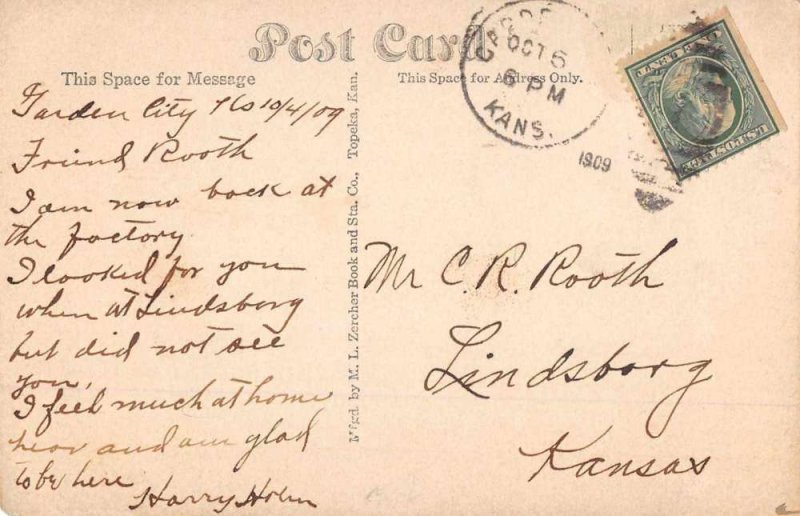 Post Card
This Space for Message
This Space for Address Only.
OCT 6
6 PM
KANS.
1909
U.S. POSTAGE
Garden City Ks 10/4/09
Friend Rooth
I am now back at
the factory
I looked for you
when at Lindsborg
but did not see
you,
I feel much at home
hear and am glad
to be here
Harry Holm
M'f'gd. by M. L. Zercher Book and Sta. Co., Topeka, Kan.
Mr C. R. Rooth
Lindsborg
Kansas